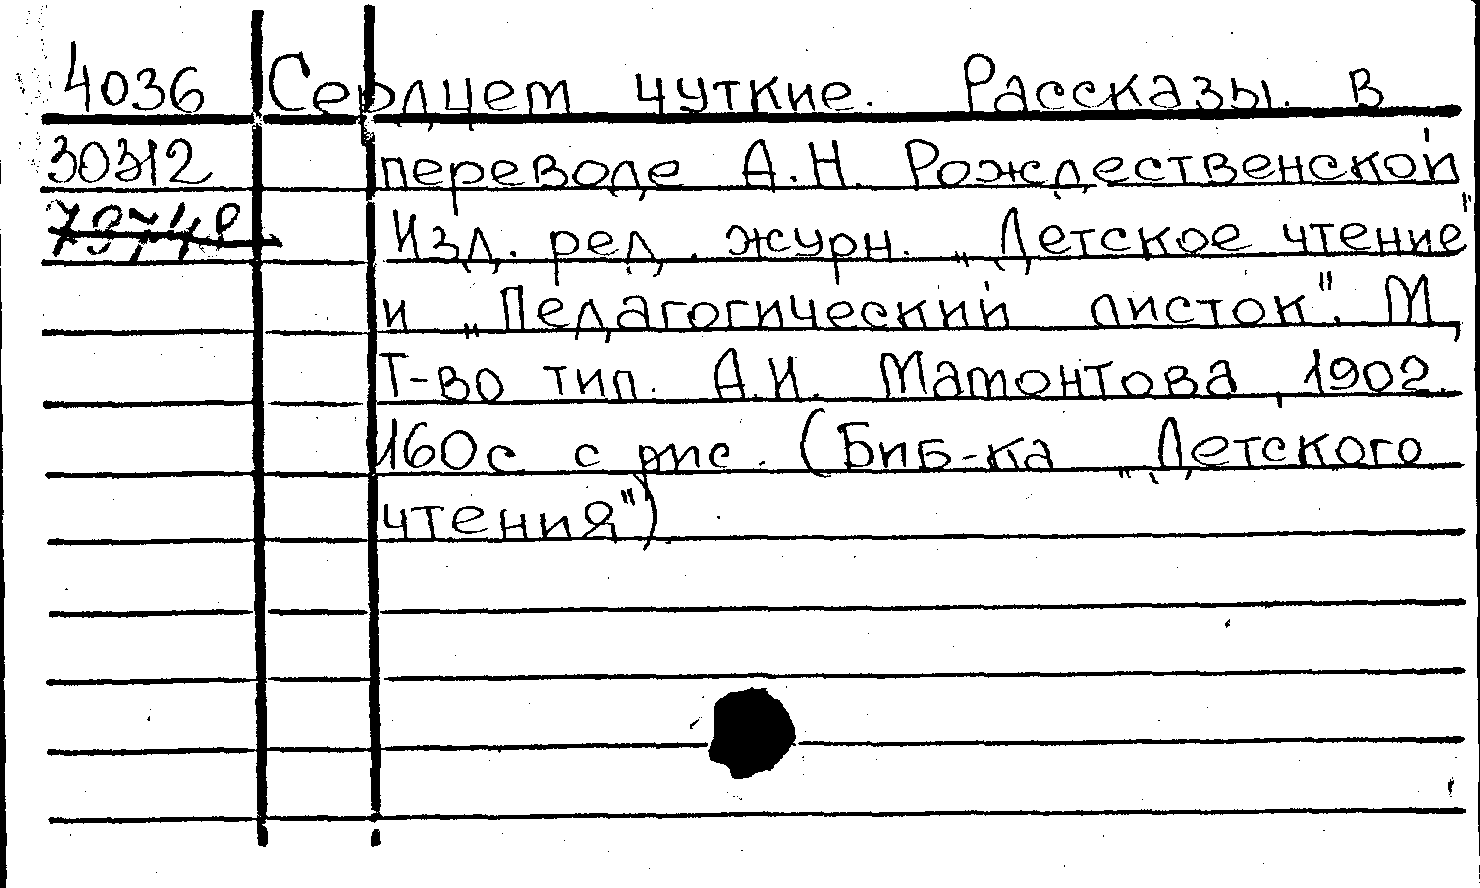 4036 Сердцем чуткие. Рассказы. в
30312 переводе А.Н. Рождественской
Изд. ред. журн. „Детское чтение"
и „Педагогический листок". М,
Т-во тип. А.И. Мамонтова, 1902.
160с с рис. (Биб-ка „Детского
чтения")